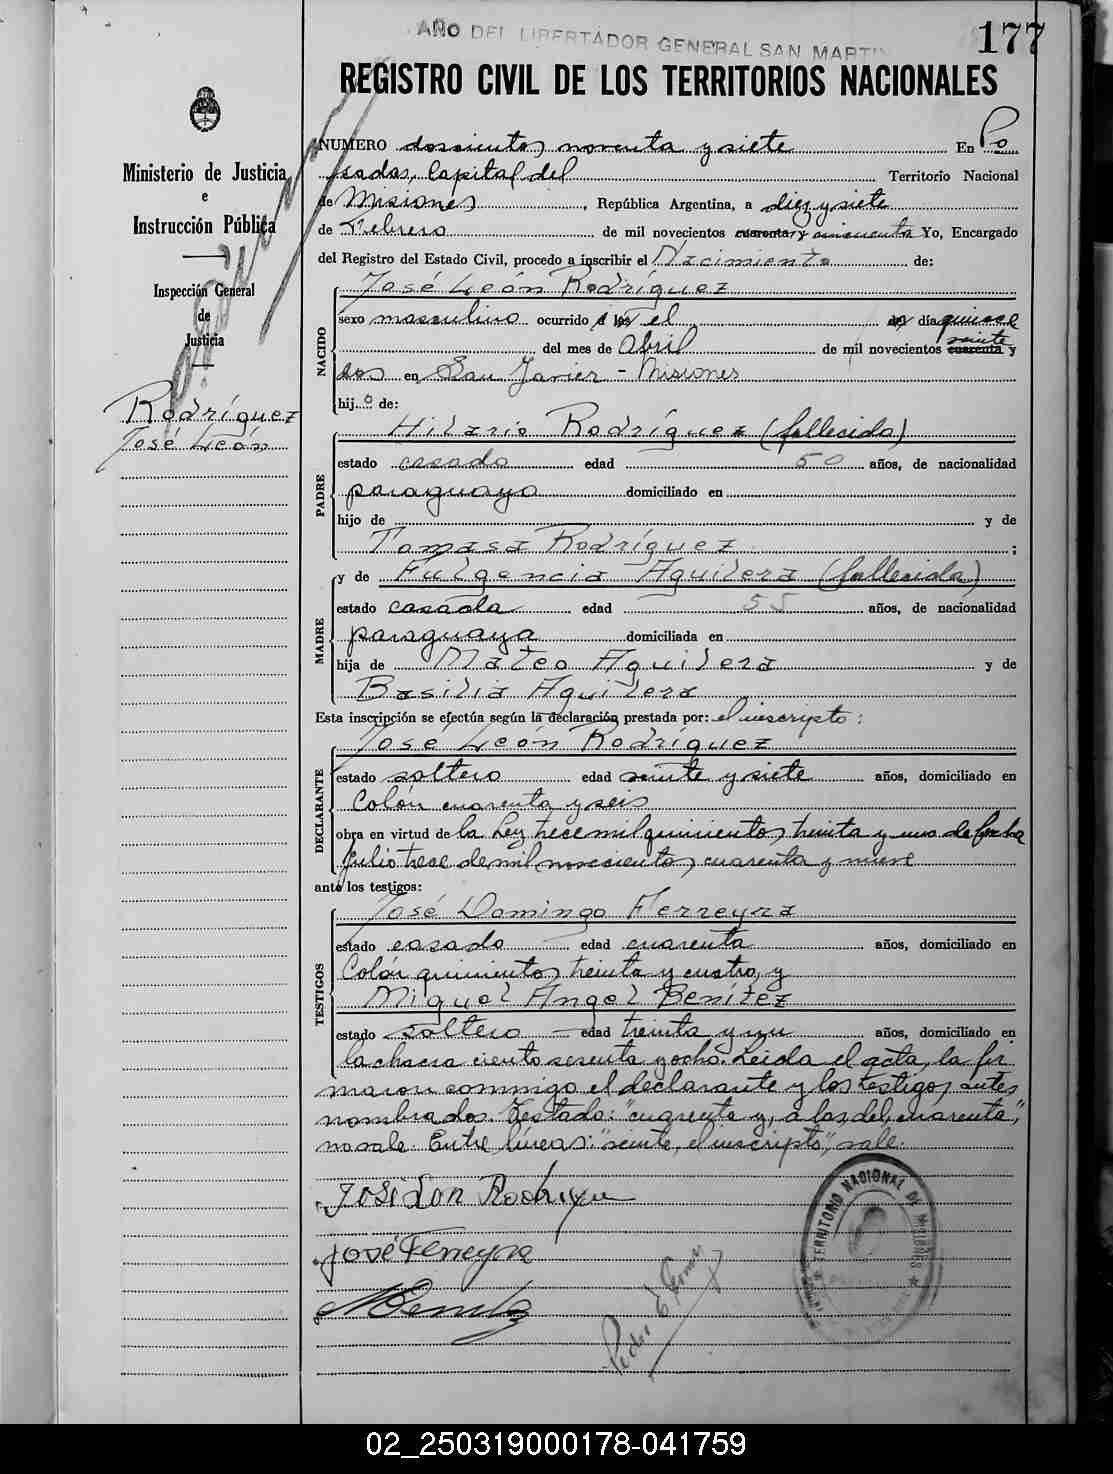 AÑO DEL LIBERTADOR GENERAL SAN MARTIN
177
REGISTRO CIVIL DE LOS TERRITORIOS NACIONALES
Ministerio de Justicia
e
Instrucción Pública
Inspección General
de
Justicia
Rodríguez
José León
NUMERO doscientos noventa y siete En Po
sadas, Capital del Territorio Nacional
de Misiones, República Argentina, a diez y siete
de Febrero de mil novecientos cuarenta y cincuenta Yo, Encargado
del Registro del Estado Civil, procedo a inscribir el Nacimiento de:
NACIDO
José León Rodríguez
sexo masculino ocurrido a las el del día quince
del mes de Abril de mil novecientos cuarenta veinte y
dos en San Javier - Misiones
hijo de:
PADRE
Hilario Rodríguez (fallecido)
estado casado edad 50 años, de nacionalidad
paraguaya domiciliado en
hijo de y de
Tomasa Rodríguez ;
MADRE
y de Fulgencia Aguilera (fallecida)
estado casada edad 55 años, de nacionalidad
paraguaya domiciliada en
hija de Mateo Aguilera y de
Basilia Aguilera
Esta inscripción se efectúa según la declaración prestada por: el inscripto:
DECLARANTE
José León Rodríguez
estado soltero edad veinte y siete años, domiciliado en
Colón cuarenta y seis
obra en virtud de la Ley trece mil quinientos treinta y uno de fecha
Julio trece de mil novecientos cuarenta y nueve
ante los testigos:
TESTIGOS
José Domingo Ferreyra
estado casado edad cuarenta años, domiciliado en
Colón quinientos treinta y cuatro, y
Miguel Angel Benítez
estado soltero edad treinta y un años, domiciliado en
la chacra ciento sesenta y ocho. Leida el acta, la fir
maron conmigo el declarante y los testigos antes
nombrados. Testado: "cuarenta y, a las, del, cuarenta",
no vale. Entre líneas: "veinte, el inscripto", vale.
José Leon Rodrigue
José Ferreyra
MBenitez
Pedro E Gomez
TERRITORIO NACIONAL DE MISIONES
02_250319000178-041759